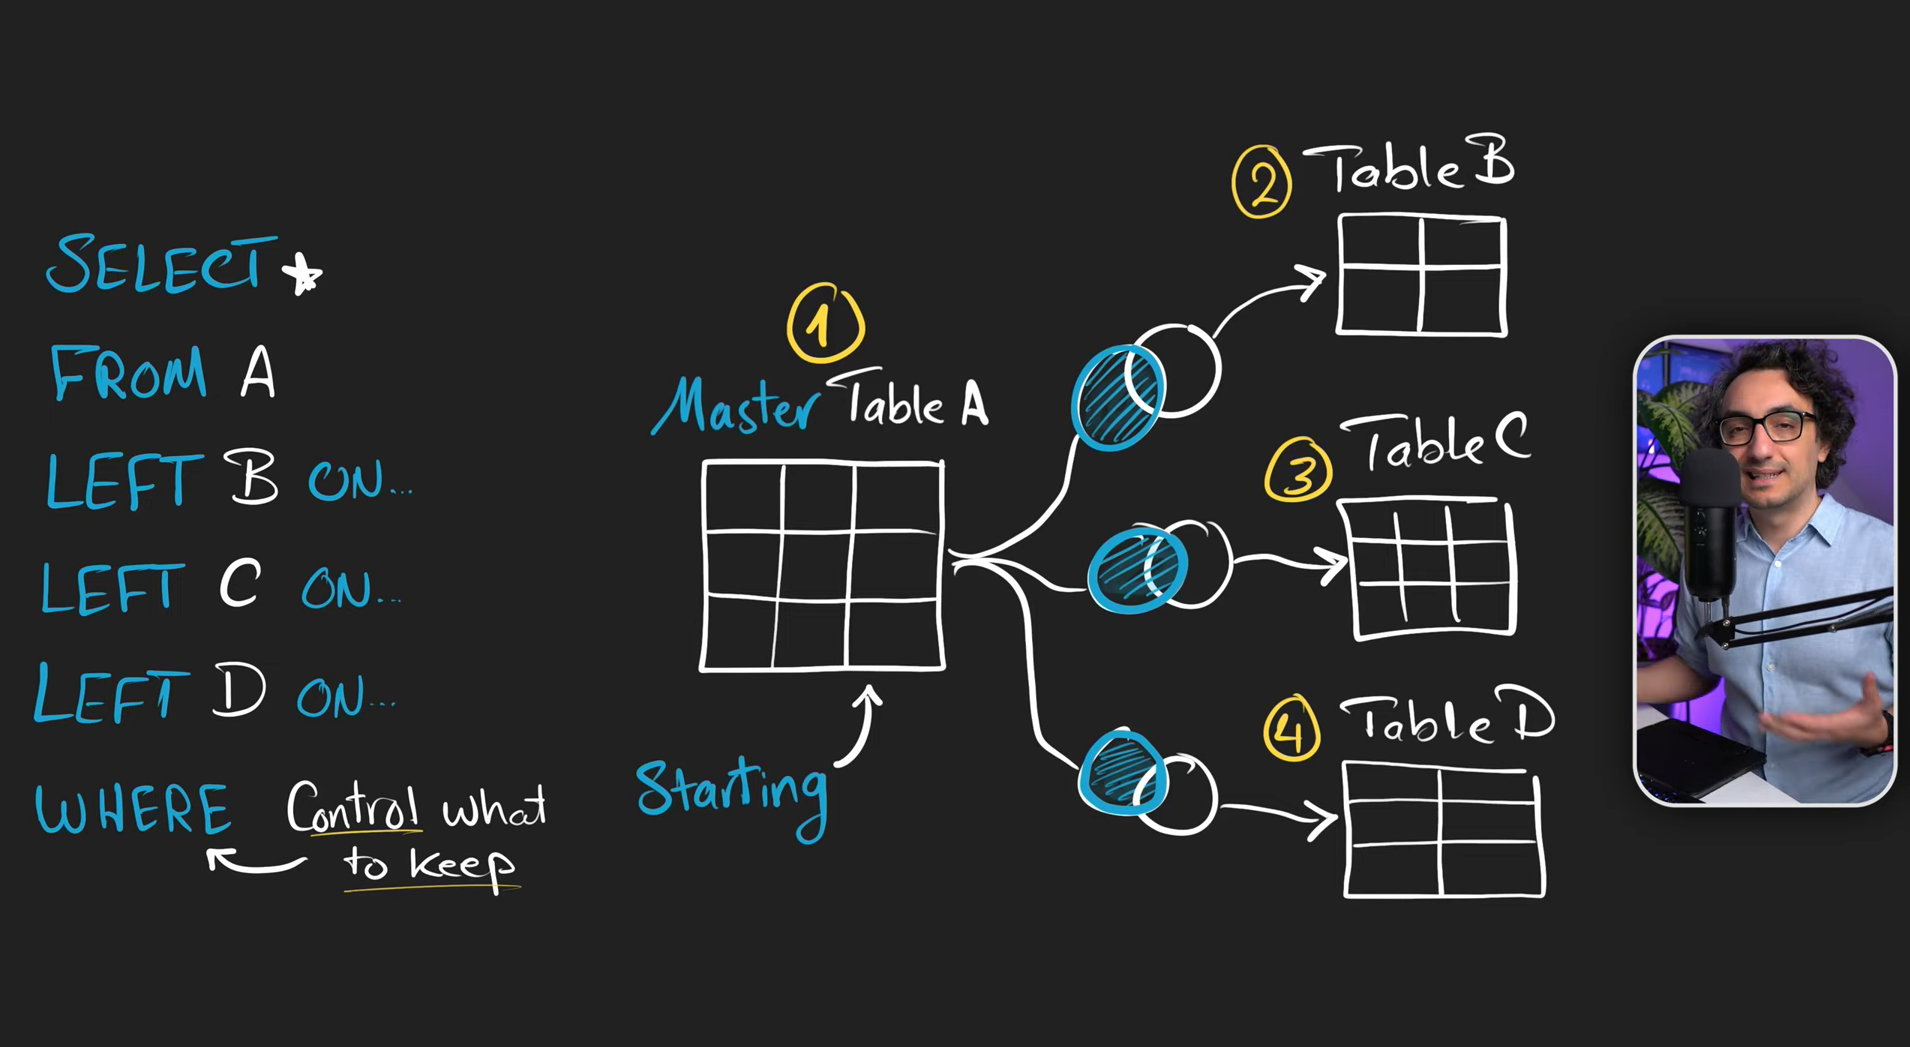 SELECT *
FROM A
LEFT B ON...
LEFT C ON...
LEFT D ON...
WHERE Control what
to keep
1
Master Table A
Starting
2 Table B
3 Table C
4 Table D